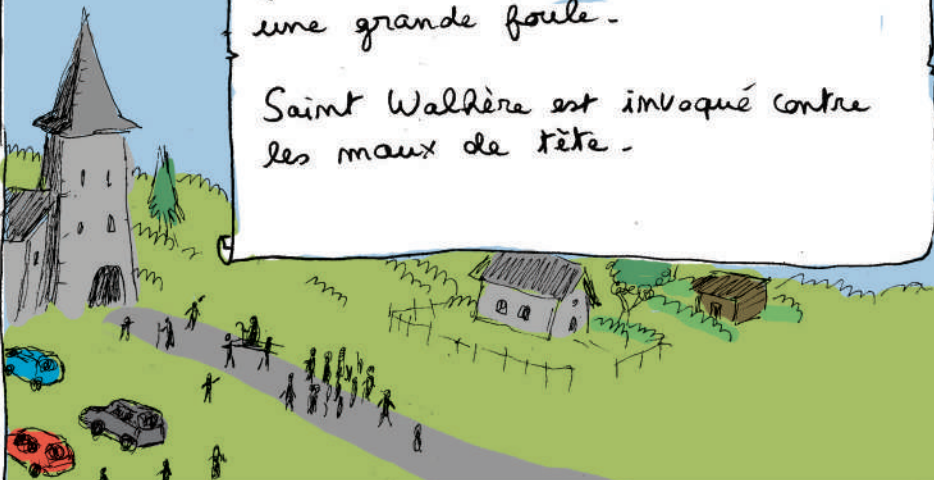 une grande foule.
Saint Walhère est invoqué contre
les maux de tête.